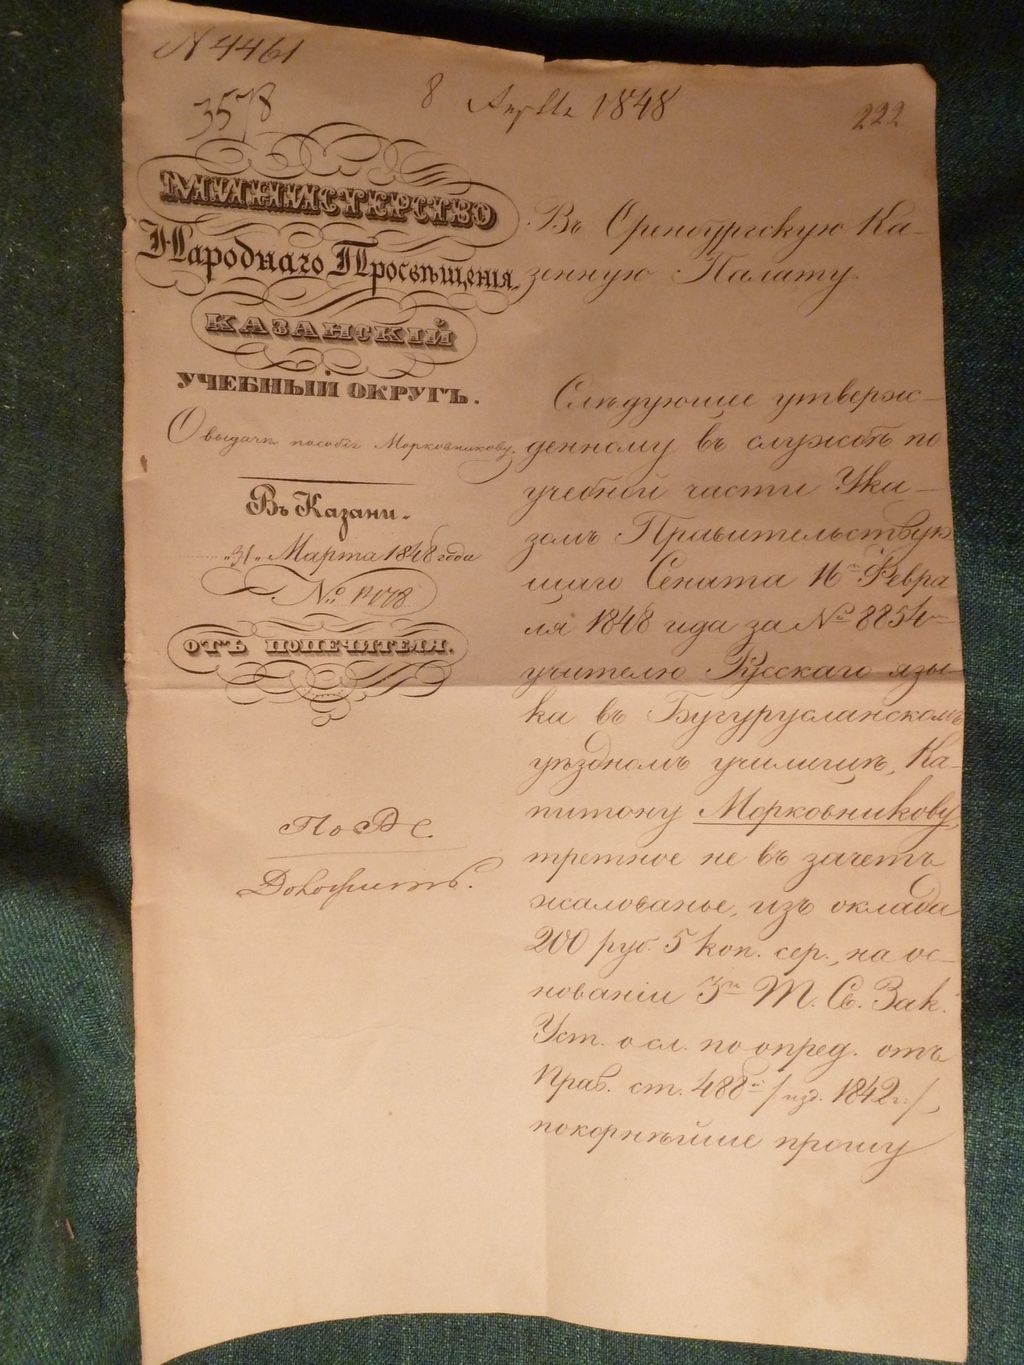 N 4461
3578
8 Апрѣля 1848
222
МИНИСТЕРСТВО
Народнаго Просвѣщенія.
КАЗАНСКІЙ
УЧЕБНЫЙ ОКРУГЪ.
О выдачѣ пособія Морковникову.
Въ Казани.
"31" Марта 1848 года
№
ОТЪ ПОПЕЧИТЕЛЯ.
Въ Оренбургскую Ка-
зенную Палату.
Слѣдующее утверж-
денному въ службѣ по
учебной части Ука-
зомъ Правительствую
щаго Сената 16го Февра
ля 1848 года за № 8854м
учителю Русскаго язы
ка въ Бугурусланскомъ
уѣздномъ училищѣ, Ка-
питону Морковникову,
третное не въ зачетъ
жалованье, изъ оклада
200 руб. 5 коп. сер., на ос-
нованіи 3го Т. Св. Зак.
Уст. о сл. по опред. отъ
Прав. ст. 488й /изд. 1842 г./,
покорнѣйше прошу